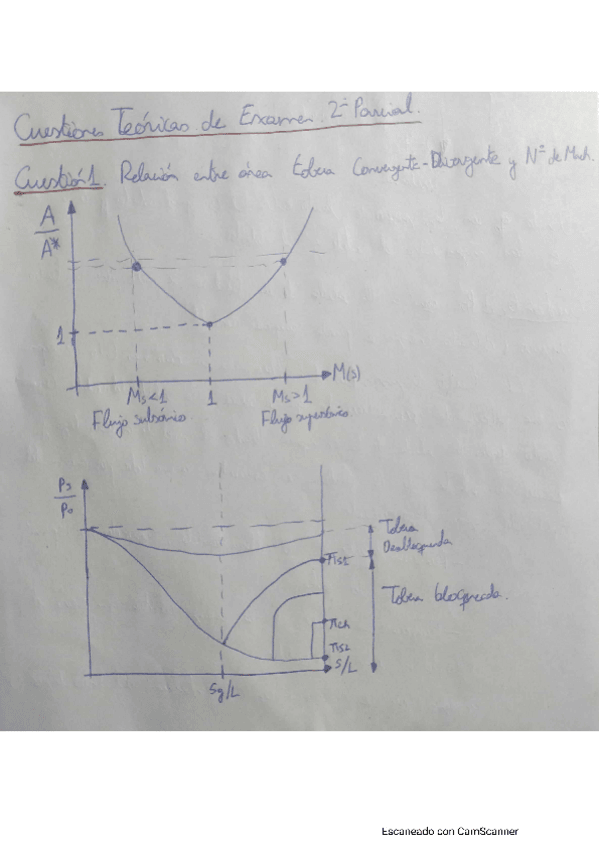 Cuestiones Teóricas de Examen. 2º Parcial.
Cuestión 1. Relación entre área tobera Convergente-Divergente y Nº de Mach.
A
A*
1
M(s)
Ms<1
1
Ms>1
Flujo subsónico
Flujo supersónico
Ps
Po
Tobera
Desbloqueada
πs1
Tobera bloqueada.
πch
πs2
S/L
Sg/L
Escaneado con CamScanner